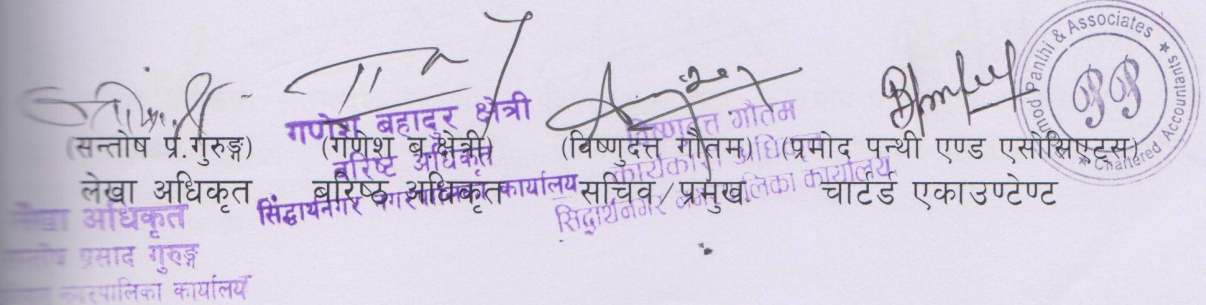 (सन्तोष प्र.गुरुङ्ग) (गणेश ब.क्षेत्री) (विष्णुदत्त गौतम) (प्रमोद पन्थी एण्ड एसोसिएट्स)
लेखा अधिकृत बरिष्ठ अधिकृत सचिव/प्रमुख चार्टर्ड एकाउण्टेण्ट
गणेश बहादुर क्षेत्री
बरिष्ट अधिकृत
सिद्धार्थनगर नगरपालिका कार्यालय
विष्णुदत्त गौतम
कार्यकारी अधिकृत
सिद्धार्थनगर नगरपालिका कार्यालय
लेखा अधिकृत
प्रसाद गुरुङ्ग
नगरपालिका कार्यालय
Pramod Panthi & Associates
Chartered Accountants